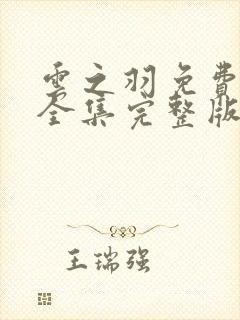 雲之羽免費
全集完整版
王瑞强